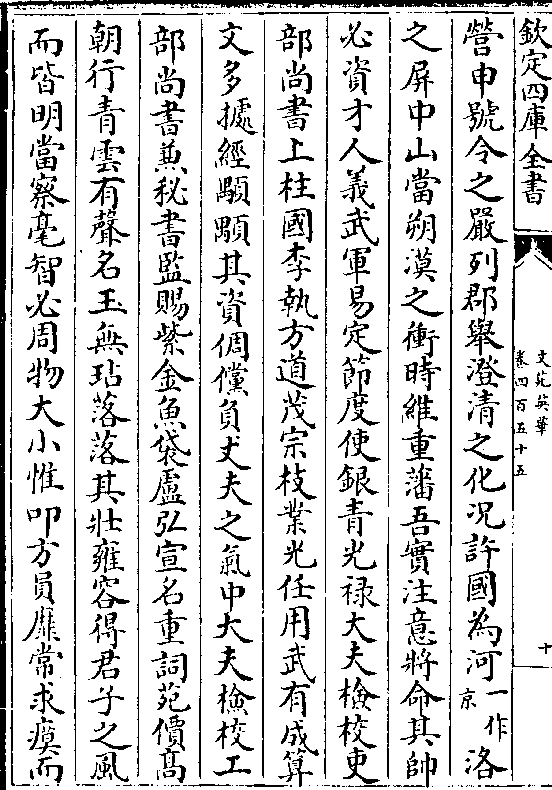 欽定四庫全書
文苑英華
卷四百五十五
十
營申號令之嚴列郡舉澄清之化况許國為河一作京洛
之屏中山當朔漠之衝時維重藩吾實注意將命其帥
必資才人義武軍易定節度使銀青光禄大夫檢校吏
部尚書上柱國李執方道茂宗枝業光任用武有成算
文多據經顒顒其資倜儻負丈夫之氣中大夫檢校工
部尚書兼秘書監賜紫金魚袋盧弘宣名重詞苑價髙
朝行青雲有聲名玉無玷落落其壯雍容得君子之風
而皆明當察毫智必周物大小惟叩方員靡常求瘼而